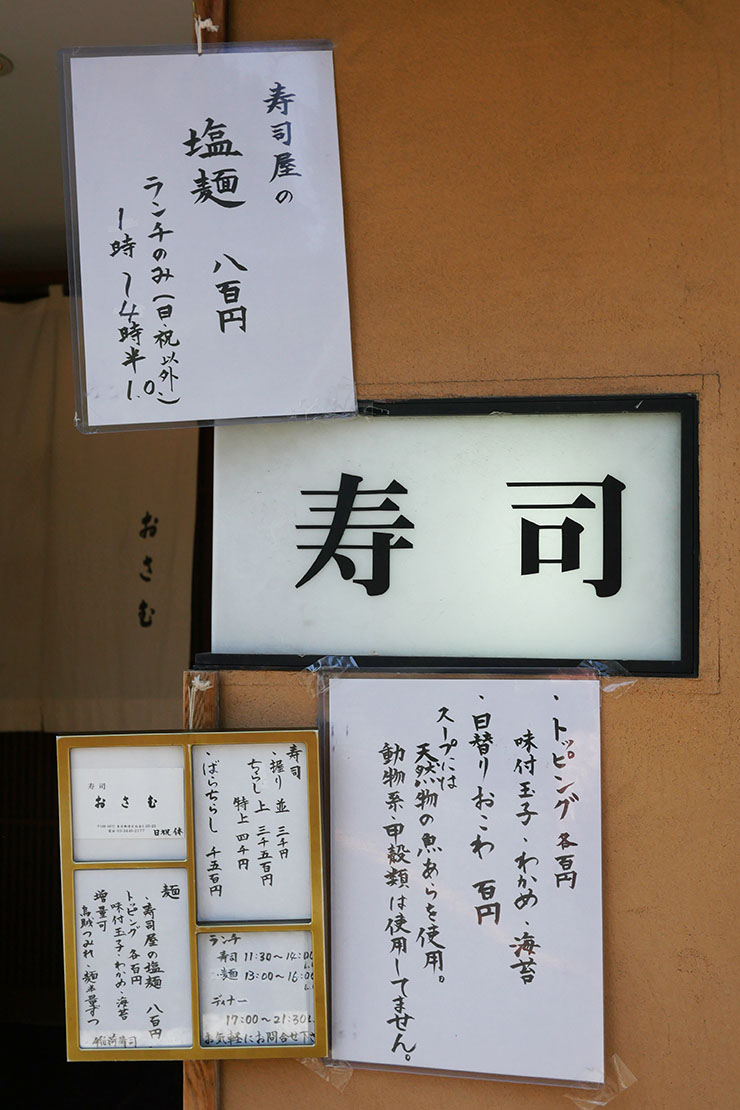 寿司屋の
塩麺 八百円
ランチのみ(日・祝以外)
1時〜4時半
L.O.
寿司
おさむ
・トッピング 各百円
味付玉子・わかめ・海苔
・日替りおこわ 百円
スープには
天然物の魚あらを使用。
動物系・甲殻類は使用してません。
寿司
おさむ
日祝 休
寿司
・握り 並 三千円
ちらし 上 三千五百円
特上 四千円
・ばらちらし 千五百円
麺
・寿司屋の塩麺 八百円
トッピング 各百円
味付玉子・わかめ・海苔
増量可
ランチ
寿司 11:30〜14:00
麺 13:00〜16:00
ディナー
17:00〜21:30
お気軽にお問合せ下さい